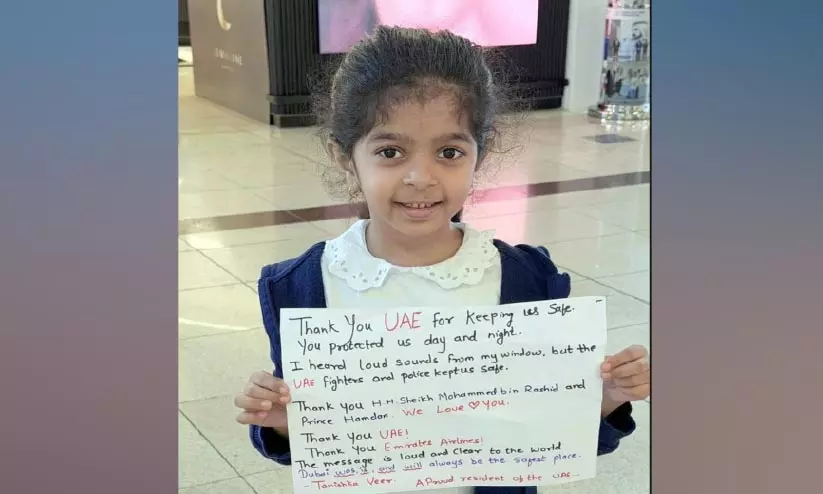 Thank You UAE for Keeping us Safe.
You protected us day and night.
I heard loud sounds from my window, but the
UAE fighters and police kept us safe.
Thank you H.H. Sheikh Mohammed bin Rashid and
Prince Hamdan. We Love ♡ You.
Thank You UAE!
Thank You Emirates Airlines!
The message is loud and Clear to the world
Dubai was, is and will always be the safest place.
- Tanishka Veer. A Proud resident of the UAE...